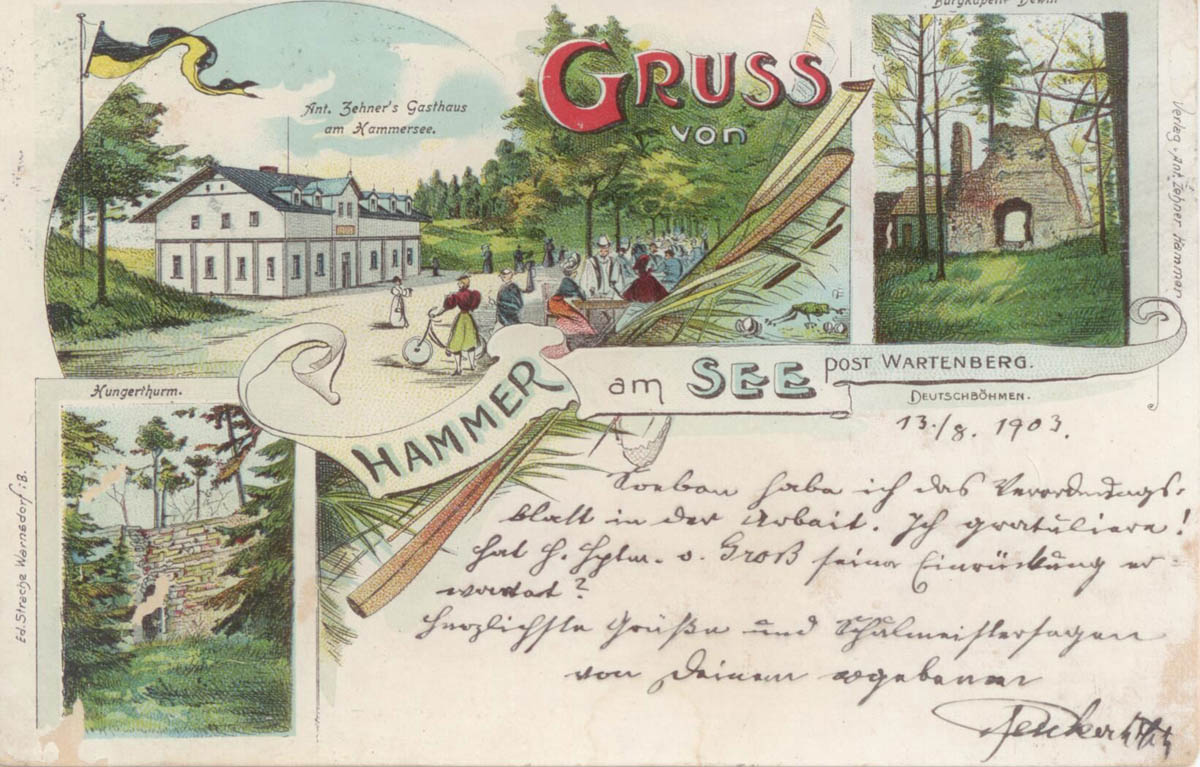 Burgkapelle Dewin
Ant. Zehner's Gasthaus
am Hammersee.
GRUSS
von
HAMMER am SEE POST WARTENBERG.
DEUTSCHBÖHMEN.
Verlag. Ant. Zehner, Hammer
Hungerthurm.
Ed. Strache Warnsdorf i. B.
13./8. 1903.
Soeben habe ich das Verordnungs-
blatt in der Arbeit. Ich gratuliere!
Hat H. Hptm. v. Groß seine Einrückung er
wartet?
Herzlichste Grüße und
von Deinem ergebenen